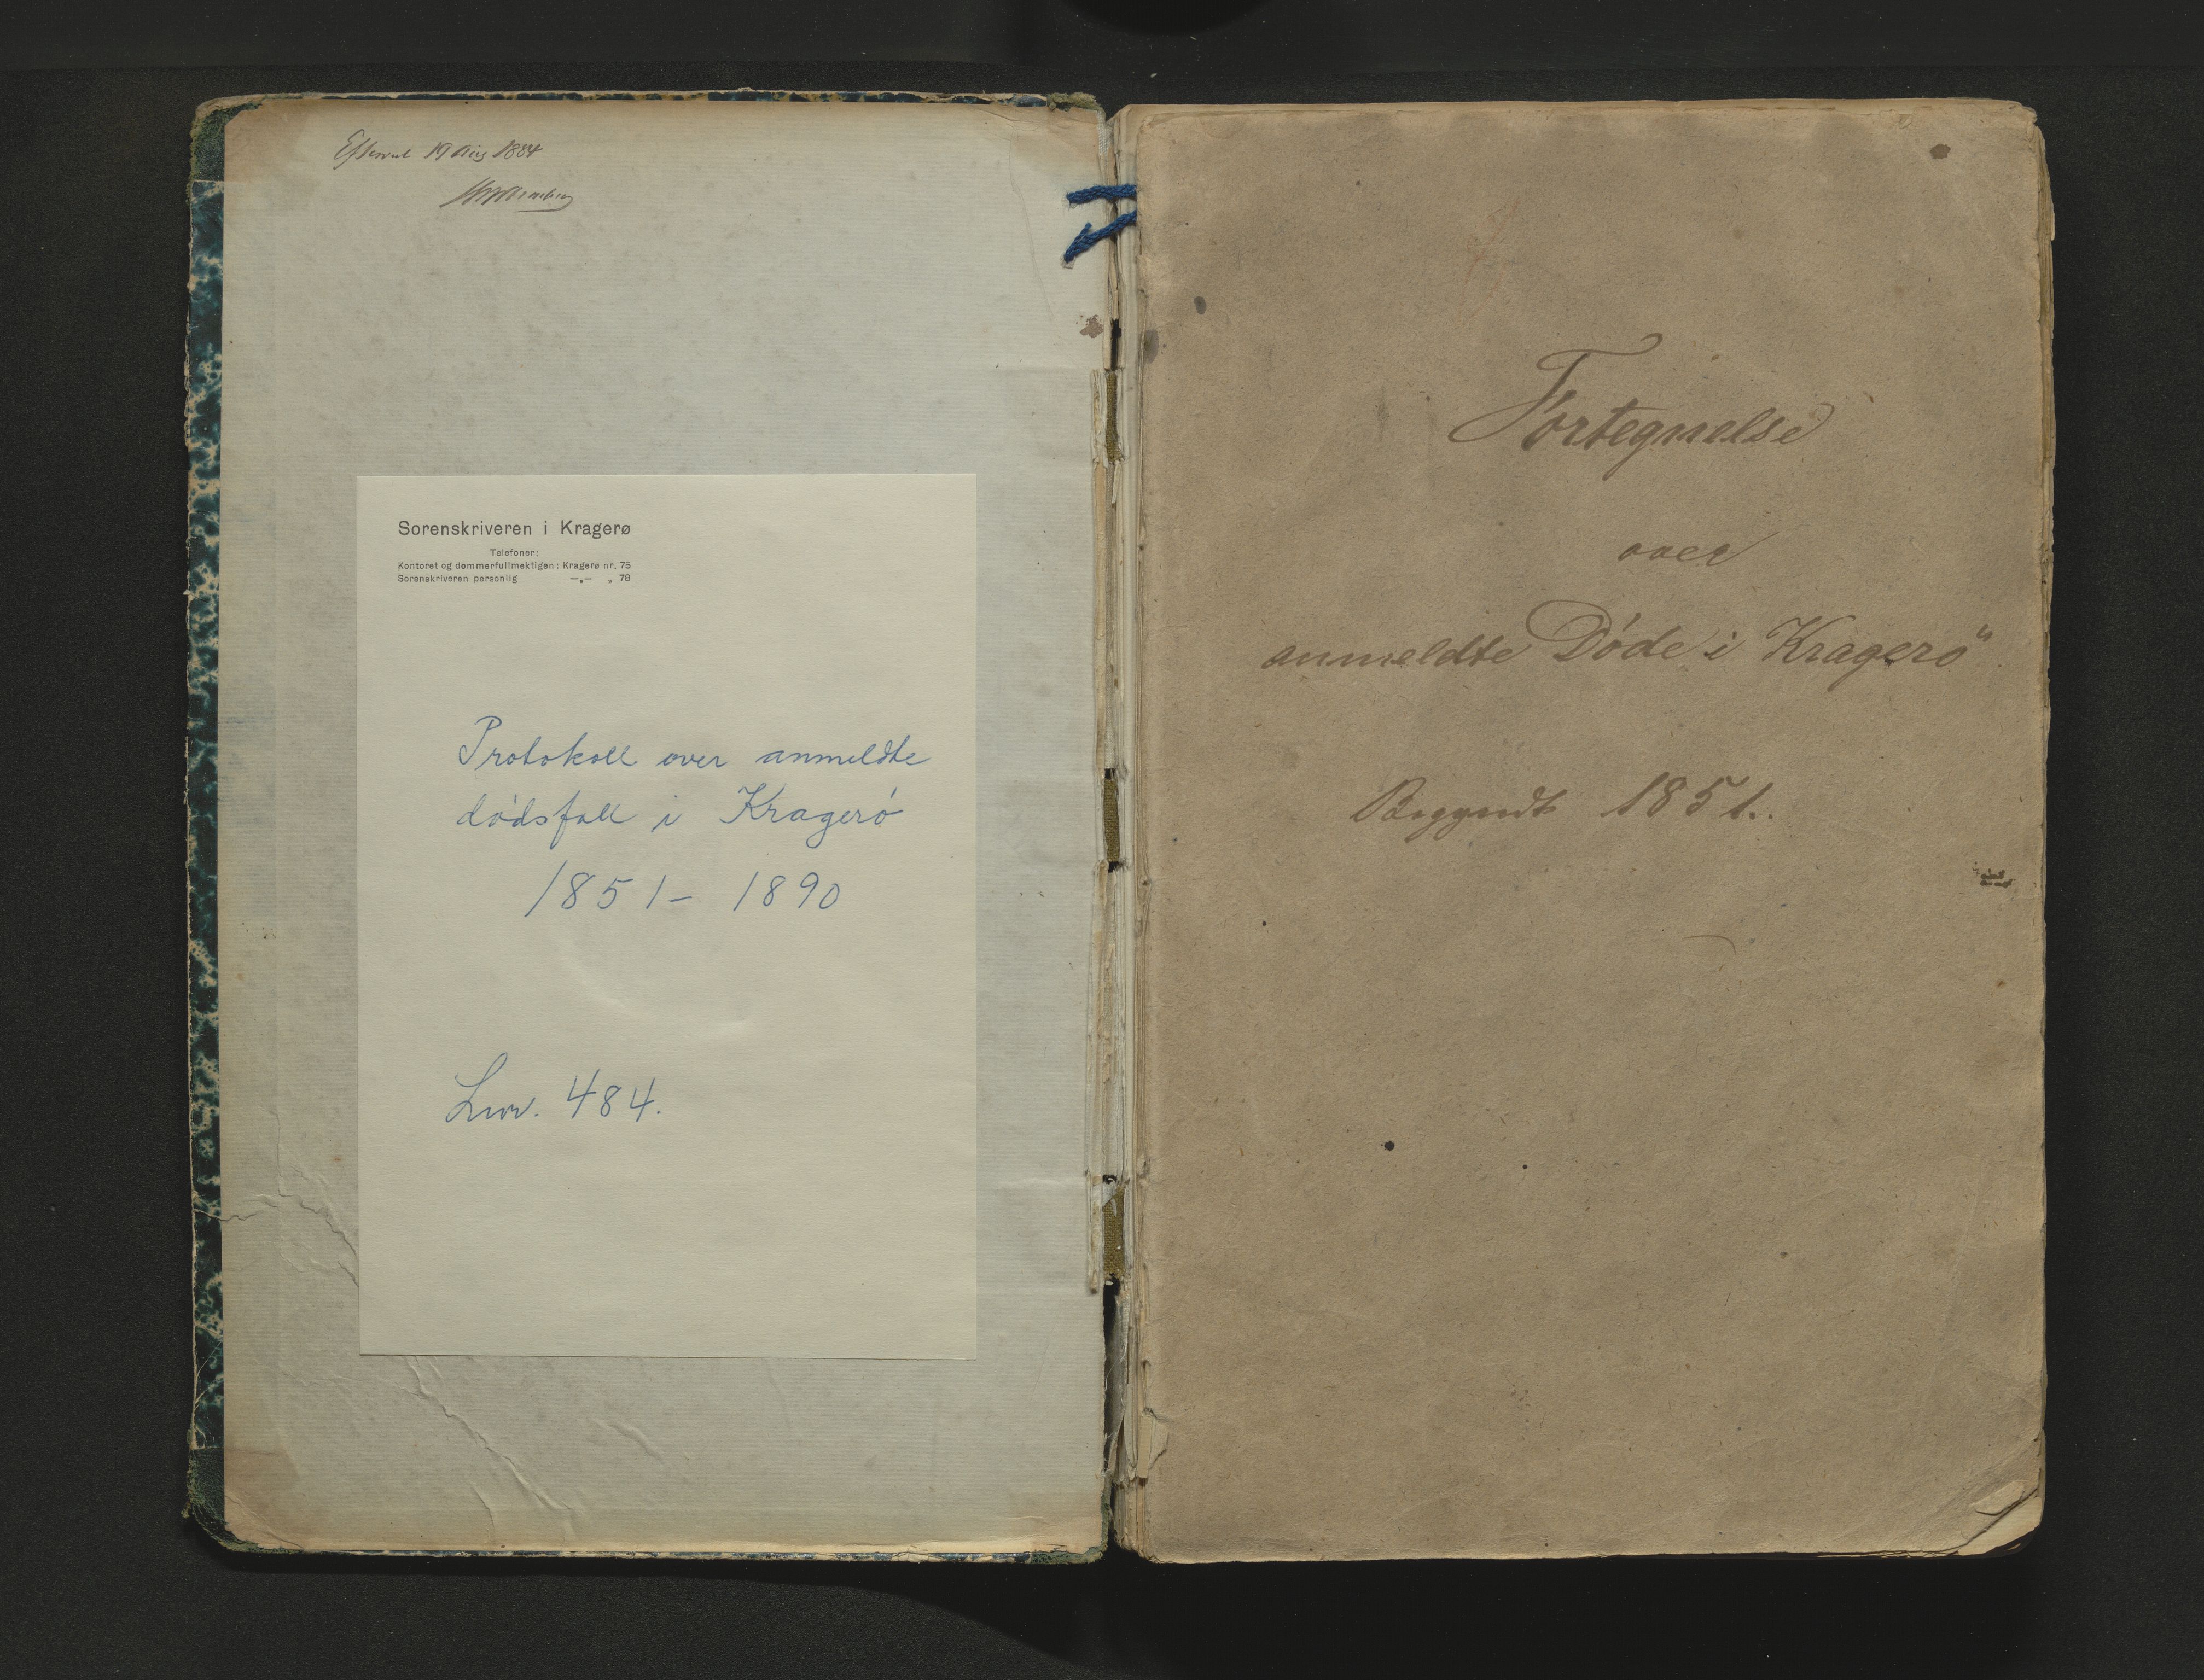 Efterseet 19 Aug 1884
Sorenskriveren i Kragerø
Telefoner:
Kontoret og dommerfullmektigen: Kragerø nr. 75
Sorenskriveren personlig —„— „ 78
Protokoll over anmeldte
dødsfall i Kragerø
1851 – 1890
Lnr. 484.
Fortegnelse
over
anmeldte Døde i Kragerö
Begyndt 1851.